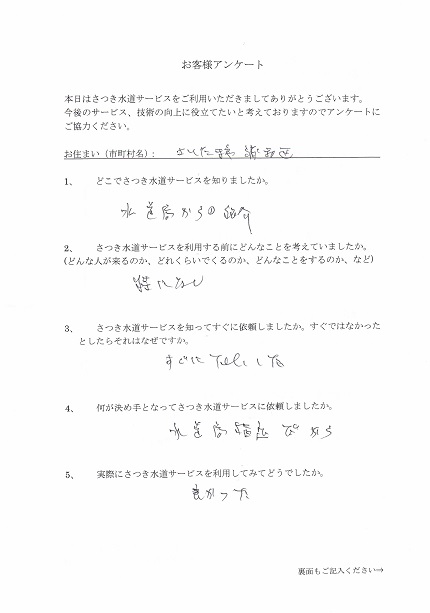 お客様アンケート
本日はさつき水道サービスをご利用いただきましてありがとうございます。
今後のサービス、技術の向上に役立てたいと考えておりますのでアンケートに
ご協力ください。
お住まい（市町村名）： さいたま市
1、 どこでさつき水道サービスを知りましたか。
水道局からの紹介
2、 さつき水道サービスを利用する前にどんなことを考えていましたか。
(どんな人が来るのか、どれくらいでくるのか、どんなことをするのか、など)
特になし
3、 さつき水道サービスを知ってすぐに依頼しましたか。すぐではなかった
としたらそれはなぜですか。
すぐにTELした
4、 何が決め手となってさつき水道サービスに依頼しましたか。
水道局指定だから
5、 実際にさつき水道サービスを利用してみてどうでしたか。
良かった
裏面もご記入ください→